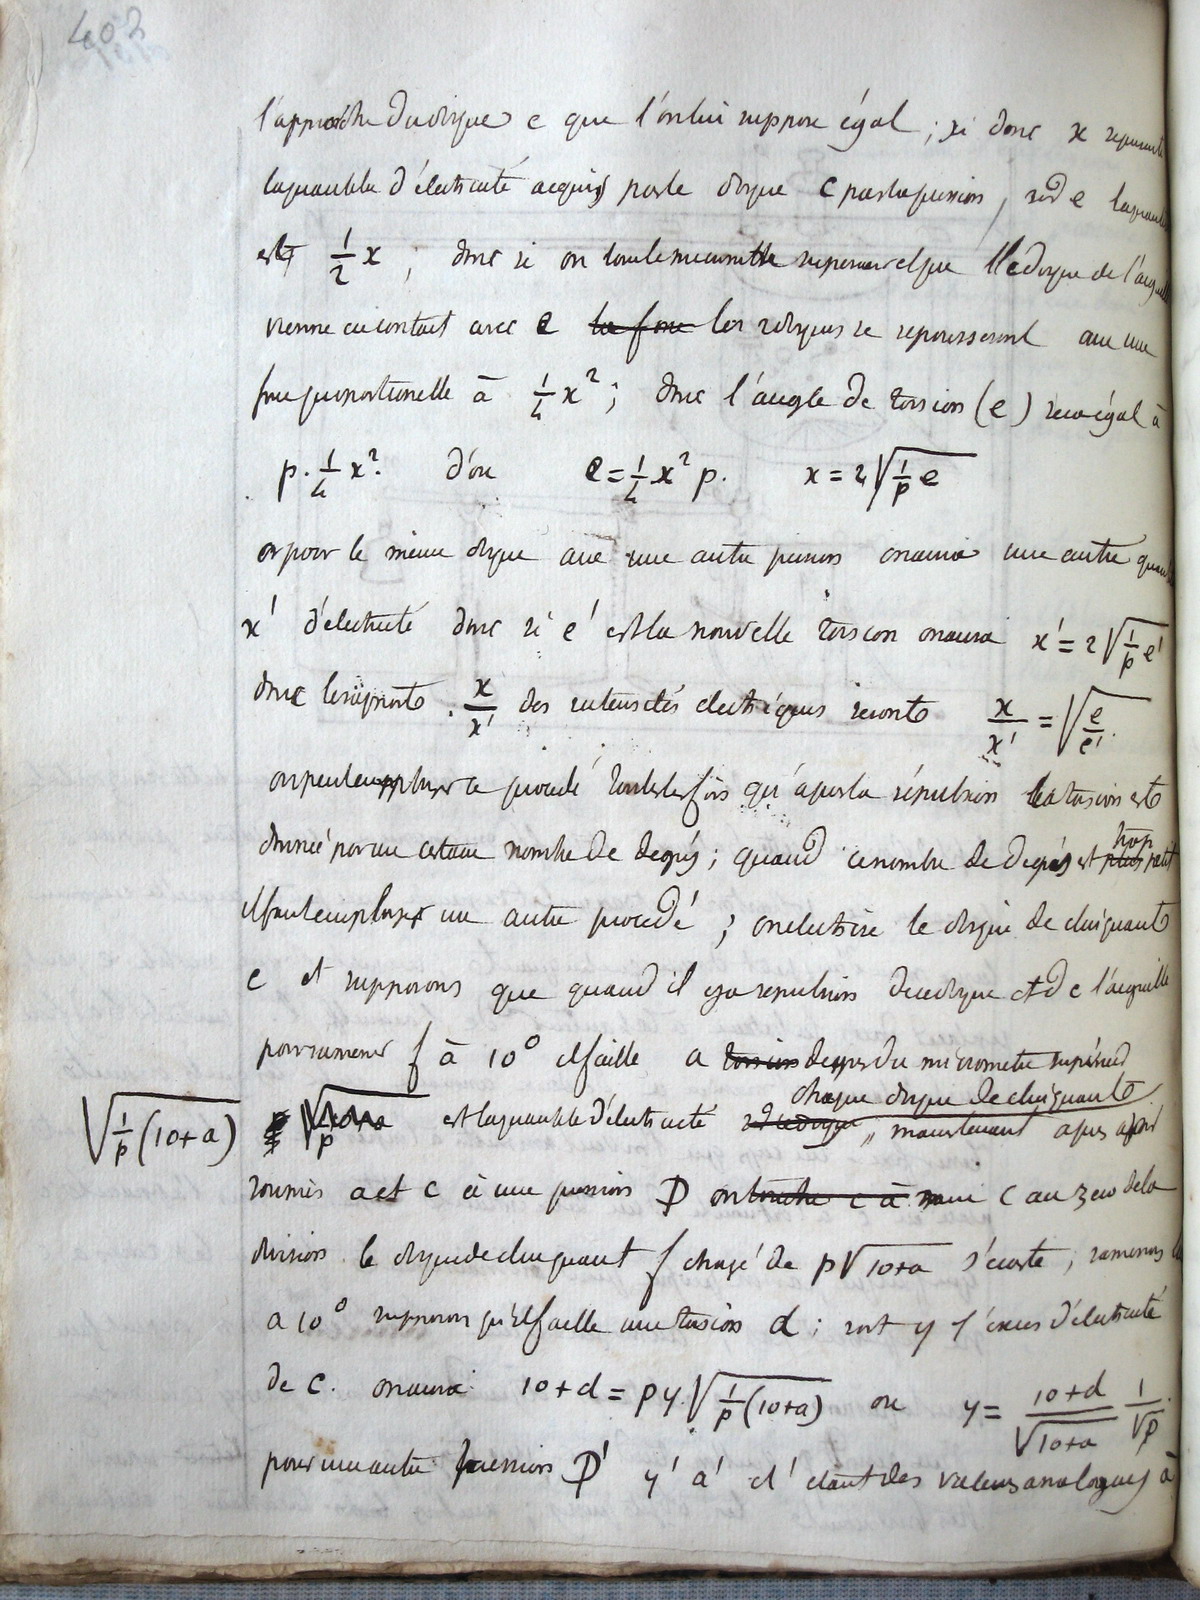 402
l'approche du disque e que l'on lui suppose égal ; si donc x represente
la quantité d'électricité acquis par le disque C par la pression, de e la quantité
est 1/2 x ; donc si on tourne le micrometre superieur et que le disque de l'aiguille
vienne en contact avec e ~~la force~~ les disques se repousseront avec une
force proportionelle à 1/4 x² ; donc l'angle de torsion (e) sera égal à
p. 1/4 x². d'ou e = 1/4 x² p. x = 2 √(1/p e)
or pour le même disque avec une autre pression on aura une autre quantité
x' d'électricité donc si e' est la nouvelle torsion on aura x' = 2 √(1/p e'
donc les rapports x/x' des intensités electriques seront x/x' = √(e/e'.
on peut employer ce procédé toutes les fois qu'après la répulsion la torsion est
donnée par un certain nombre de degrés ; quand ce nombre de degrés est ~~plus~~ trop petit
il faut employer un autre procédé ; on électrise le disque de clinquant
e et supposons que quand il y a repulsion du disque et de l'aiguille
pour ramener f à 10° il faille a ~~torsion~~ degres du micrometre superieur
√(1/p (10+a) est la quantité d'électricité chaque disque de clinquant, maintenant apres avoir
soumis a et c à une pression P ~~on touche c à~~ C au zero de la
division le disque de clinquant f chargé de p√10+a s'écarte ; ramenons le
a 10° supposons qu'il faille une torsion d ; soit y l'exces d'électricité
de C. on aura 10+d = py √(1/p (10+a) ou y = 10+d/√10+a 1/√p.
pour une autre pression P' y' a' d' étant des valeurs analogues à